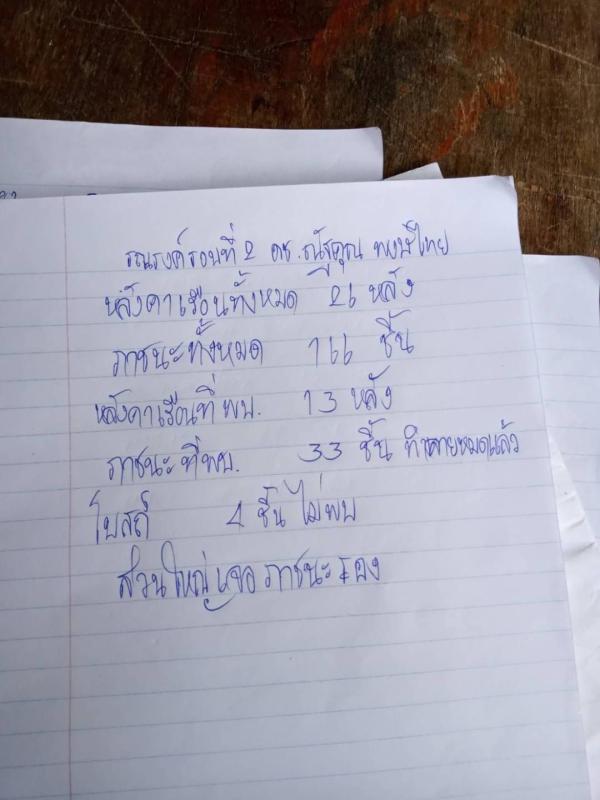 รณรงค์รอบที่ 2 ดช. ณัฐคุณ พงษ์ไทย
หลังคาเรือนทั้งหมด 26 หลัง
ภาชนะทั้งหมด 166 ชิ้น
หลังคาเรือนที่พบ. 13 หลัง
ภาชนะที่พบ. 33 ชิ้น ทำลายหมดแล้ว
โบสถ์ 4 ชิ้น ไม่พบ
ส่วนใหญ่เจอ ภาชนะ